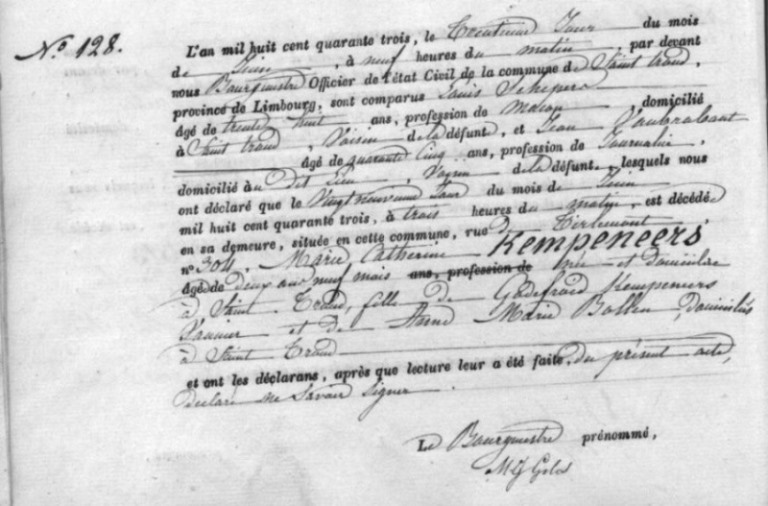 N.º 128.
L'an mil huit cent quarante trois, le trentieme Jour du mois
de Juin, à neuf heures du matin, par devant
nous Bourgmestre Officier de l'état Civil de la commune de Saint Trond,
province de Limbourg, sont comparus Louis Schepers
âgé de trente huit ans, profession de Maçon domicilié
à Saint Trond, Voisin de la défunte, et Jean Vanbrabant
âgé de quarante cinq ans, profession de Journalier,
domicilié au dit Lieu, Voisin de la défunte, lesquels nous
ont déclaré que le Vingt neuvieme Jour du mois de Juin
mil huit cent quarante trois, à trois heures du matin, est décédée
en sa demeure, située en cette commune, rue de Tirlemont,
nº 304, Marie Catherine Kempeneers
âgée de deux ans neuf mois ans, profession de née et domiciliée
à Saint Trond, fille de Godefroid Kempeneers
Vannier et de Anne Marie Bollen, domiciliés
à Saint Trond
et ont les déclarans, après que lecture leur a été faite, du présent acte,
déclaré ne savoir signer.
Le Bourgmestre prénommé,